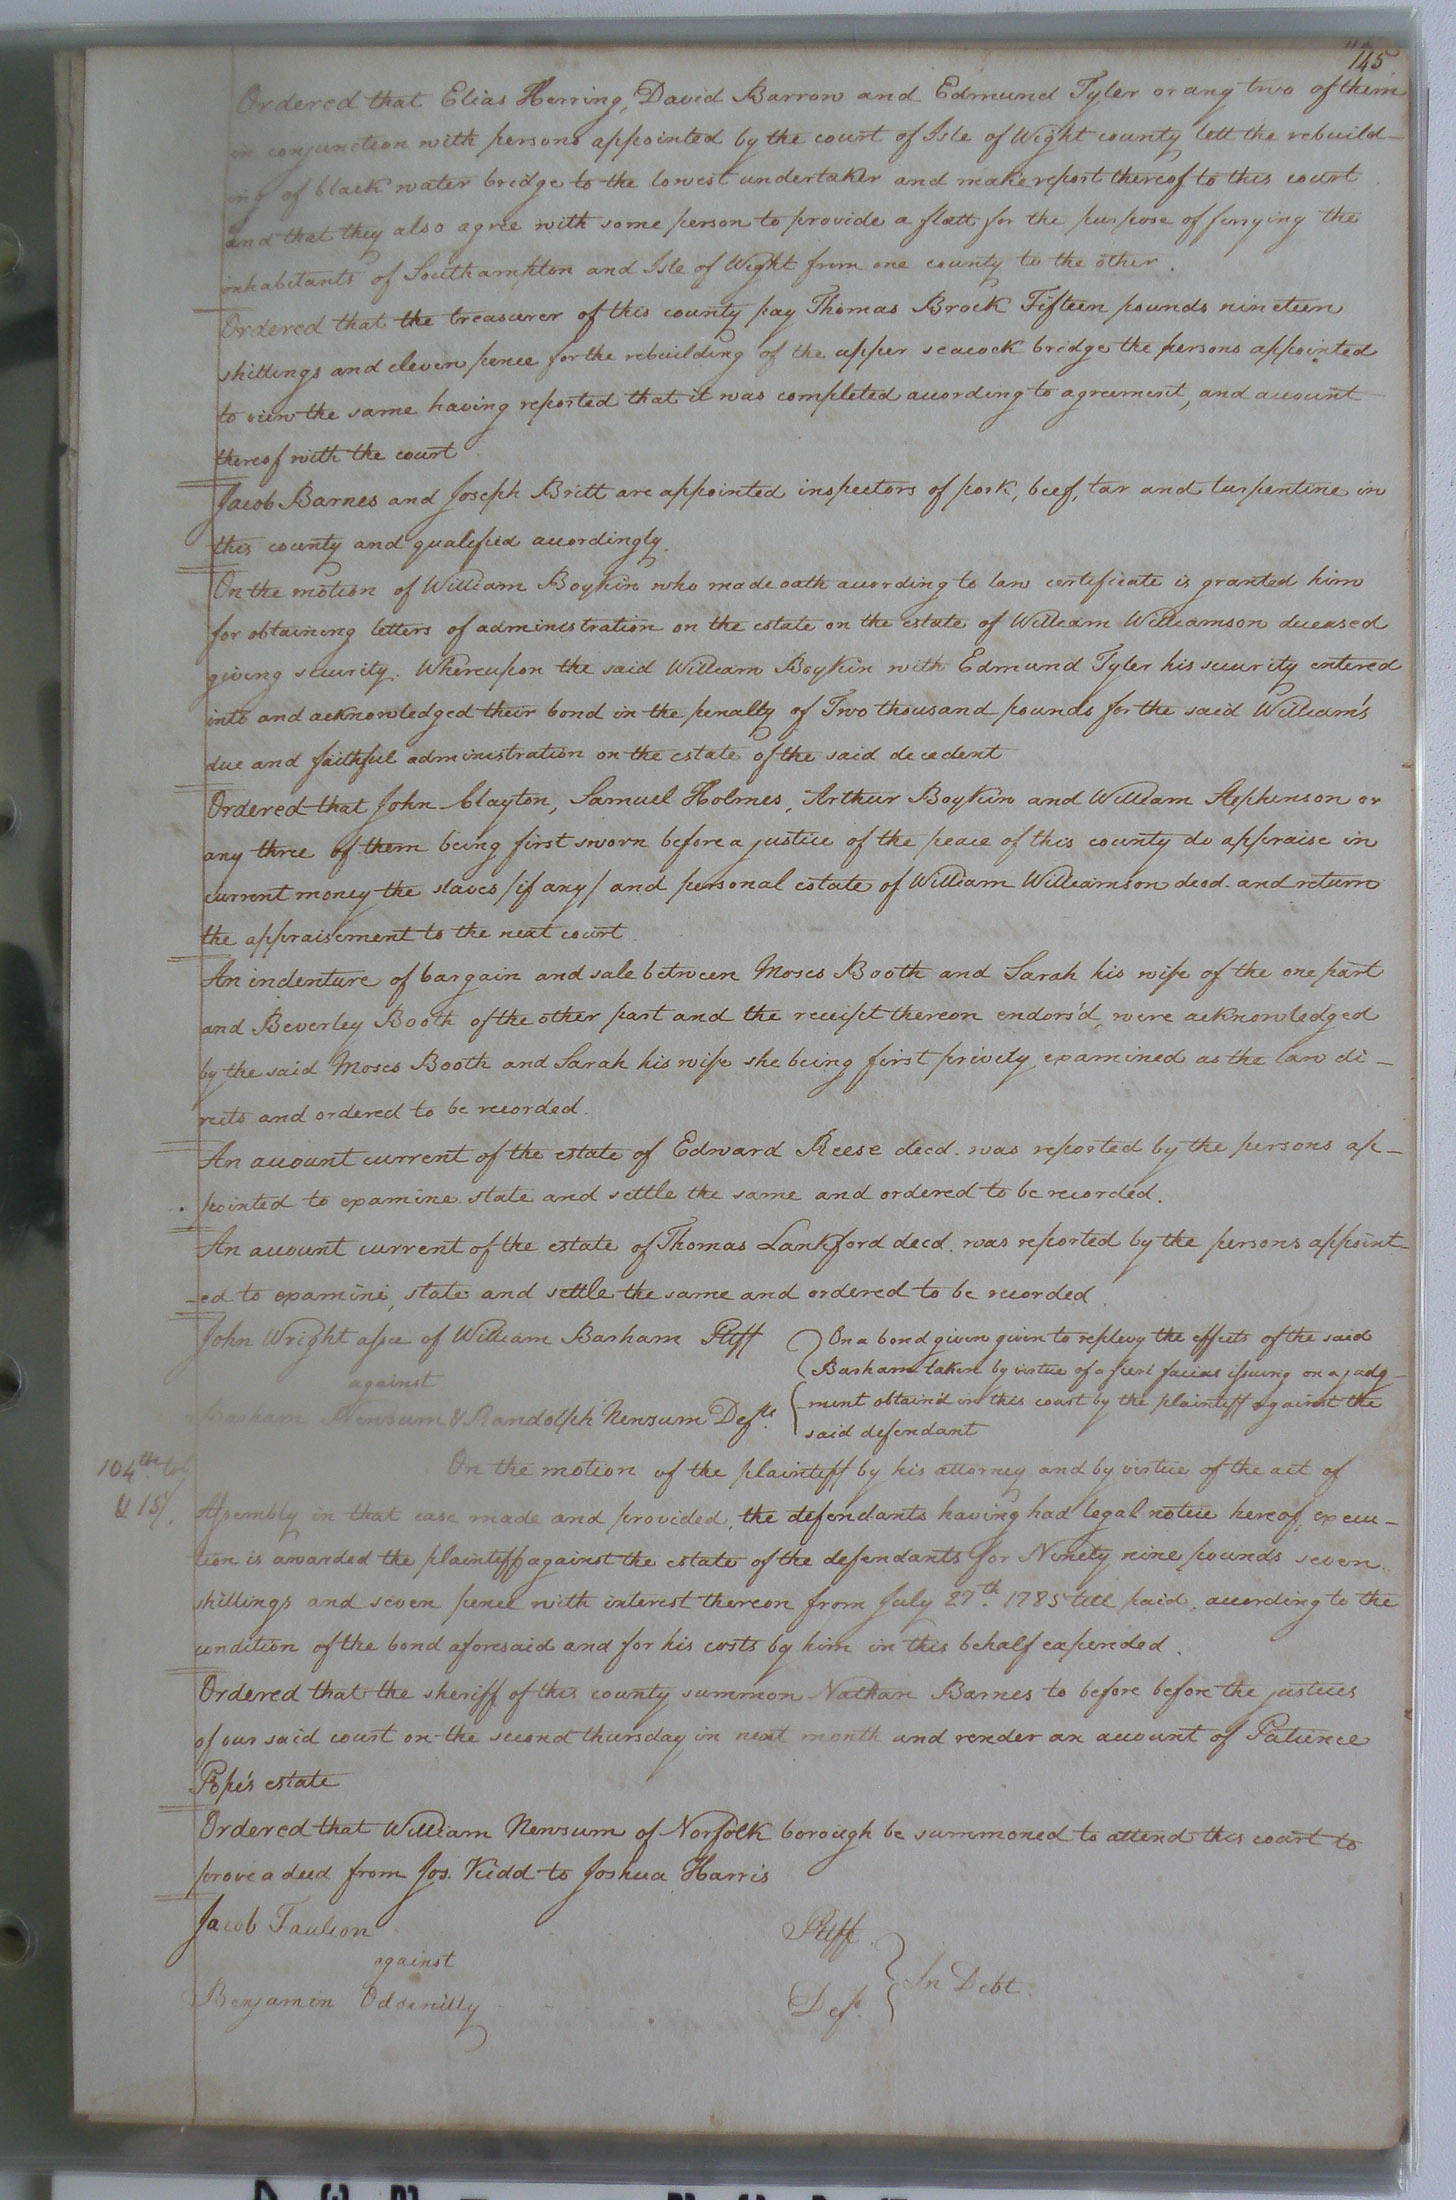 145
Ordered that Elias Herring, David Barrow and Edmund Tyler or any two of them
in conjunction with persons appointed by the court of Isle of Wight county lett the rebuild-
ing of black water bridge to the lowest undertaker and make report thereof to this court
and that they also agree with some person to provide a flatt for the purpose of ferrying the
inhabitants of Southampton and Isle of Wight from one county to the other.
Ordered that the treasurer of this county pay Thomas Brock Fifteen pounds nineteen
shillings and eleven pence for the rebuilding of the upper seacock bridge the persons appointed
to view the same having reported that it was completed according to agreement, and account
thereof with the court
Jacob Barnes and Joseph Britt are appointed inspectors of pork, beef, tar and turpentine in
this county and qualified accordingly.
On the motion of William Boykin who made oath according to law certificate is granted him
for obtaining letters of administration on the estate on the estate of William Williamson deceased
giving security. Whereupon the said William Boykin with Edmund Tyler his security entered
into and acknowledged their bond in the penalty of Two thousand pounds for the said William's
due and faithful administration on the estate of the said decedent
Ordered that John Clayton, Samuel Holmes, Arthur Boykin and William Stephenson or
any three of them being first sworn before a justice of the peace of this county do appraise in
current money the slaves /if any/ and personal estate of William Williamson decd. and return
the appraisement to the next court
An indenture of bargain and sale between Moses Booth and Sarah his wife of the one part
and Beverley Booth of the other part and the receipt thereon endors'd, were acknowledged
by the said Moses Booth and Sarah his wife she being first privily examined as the law di-
rects and ordered to be recorded.
An account current of the estate of Edward Reese decd. was reported by the persons ap-
pointed to examine state and settle the same and ordered to be recorded.
An account current of the estate of Thomas Lankford decd. was reported by the persons appoint-
-ed to examine, state and settle the same and ordered to be recorded.
John Wright assee of William Barham Pltff
against
Barham Newsum & Randolph Newsum Defts.
On a bond given given to replevy the effects of the said
Barham taken by virtue of a fieri facias issuing on a judg-
-ment obtain'd in this court by the plaintiff against the
said defendant
104th. tob
& 15/.
On the motion of the plaintiff by his attorney and by virtue of the act of
Assembly in that case made and provided, the defendants having had legal notice hereof, execu-
tion is awarded the plaintiff against the estate of the defendants for Ninety nine pounds seven
shillings and seven pence with interest thereon from July 27th. 1785 till paid, according to the
condition of the bond aforesaid and for his costs by him in this behalf expended.
Ordered that the sheriff of this county summon Nathan Barnes to before before the justices
of our said court on the second thursday in next month and render an account of Patience
Pope's estate
Ordered that William Newsum of Norfolk borough be summoned to attend this court to
prove a deed from Jos. Kidd to Joshua Harris
Jacob Faulcon Pltff
against
In Debt.
Benjamin Odsenilly Deft.